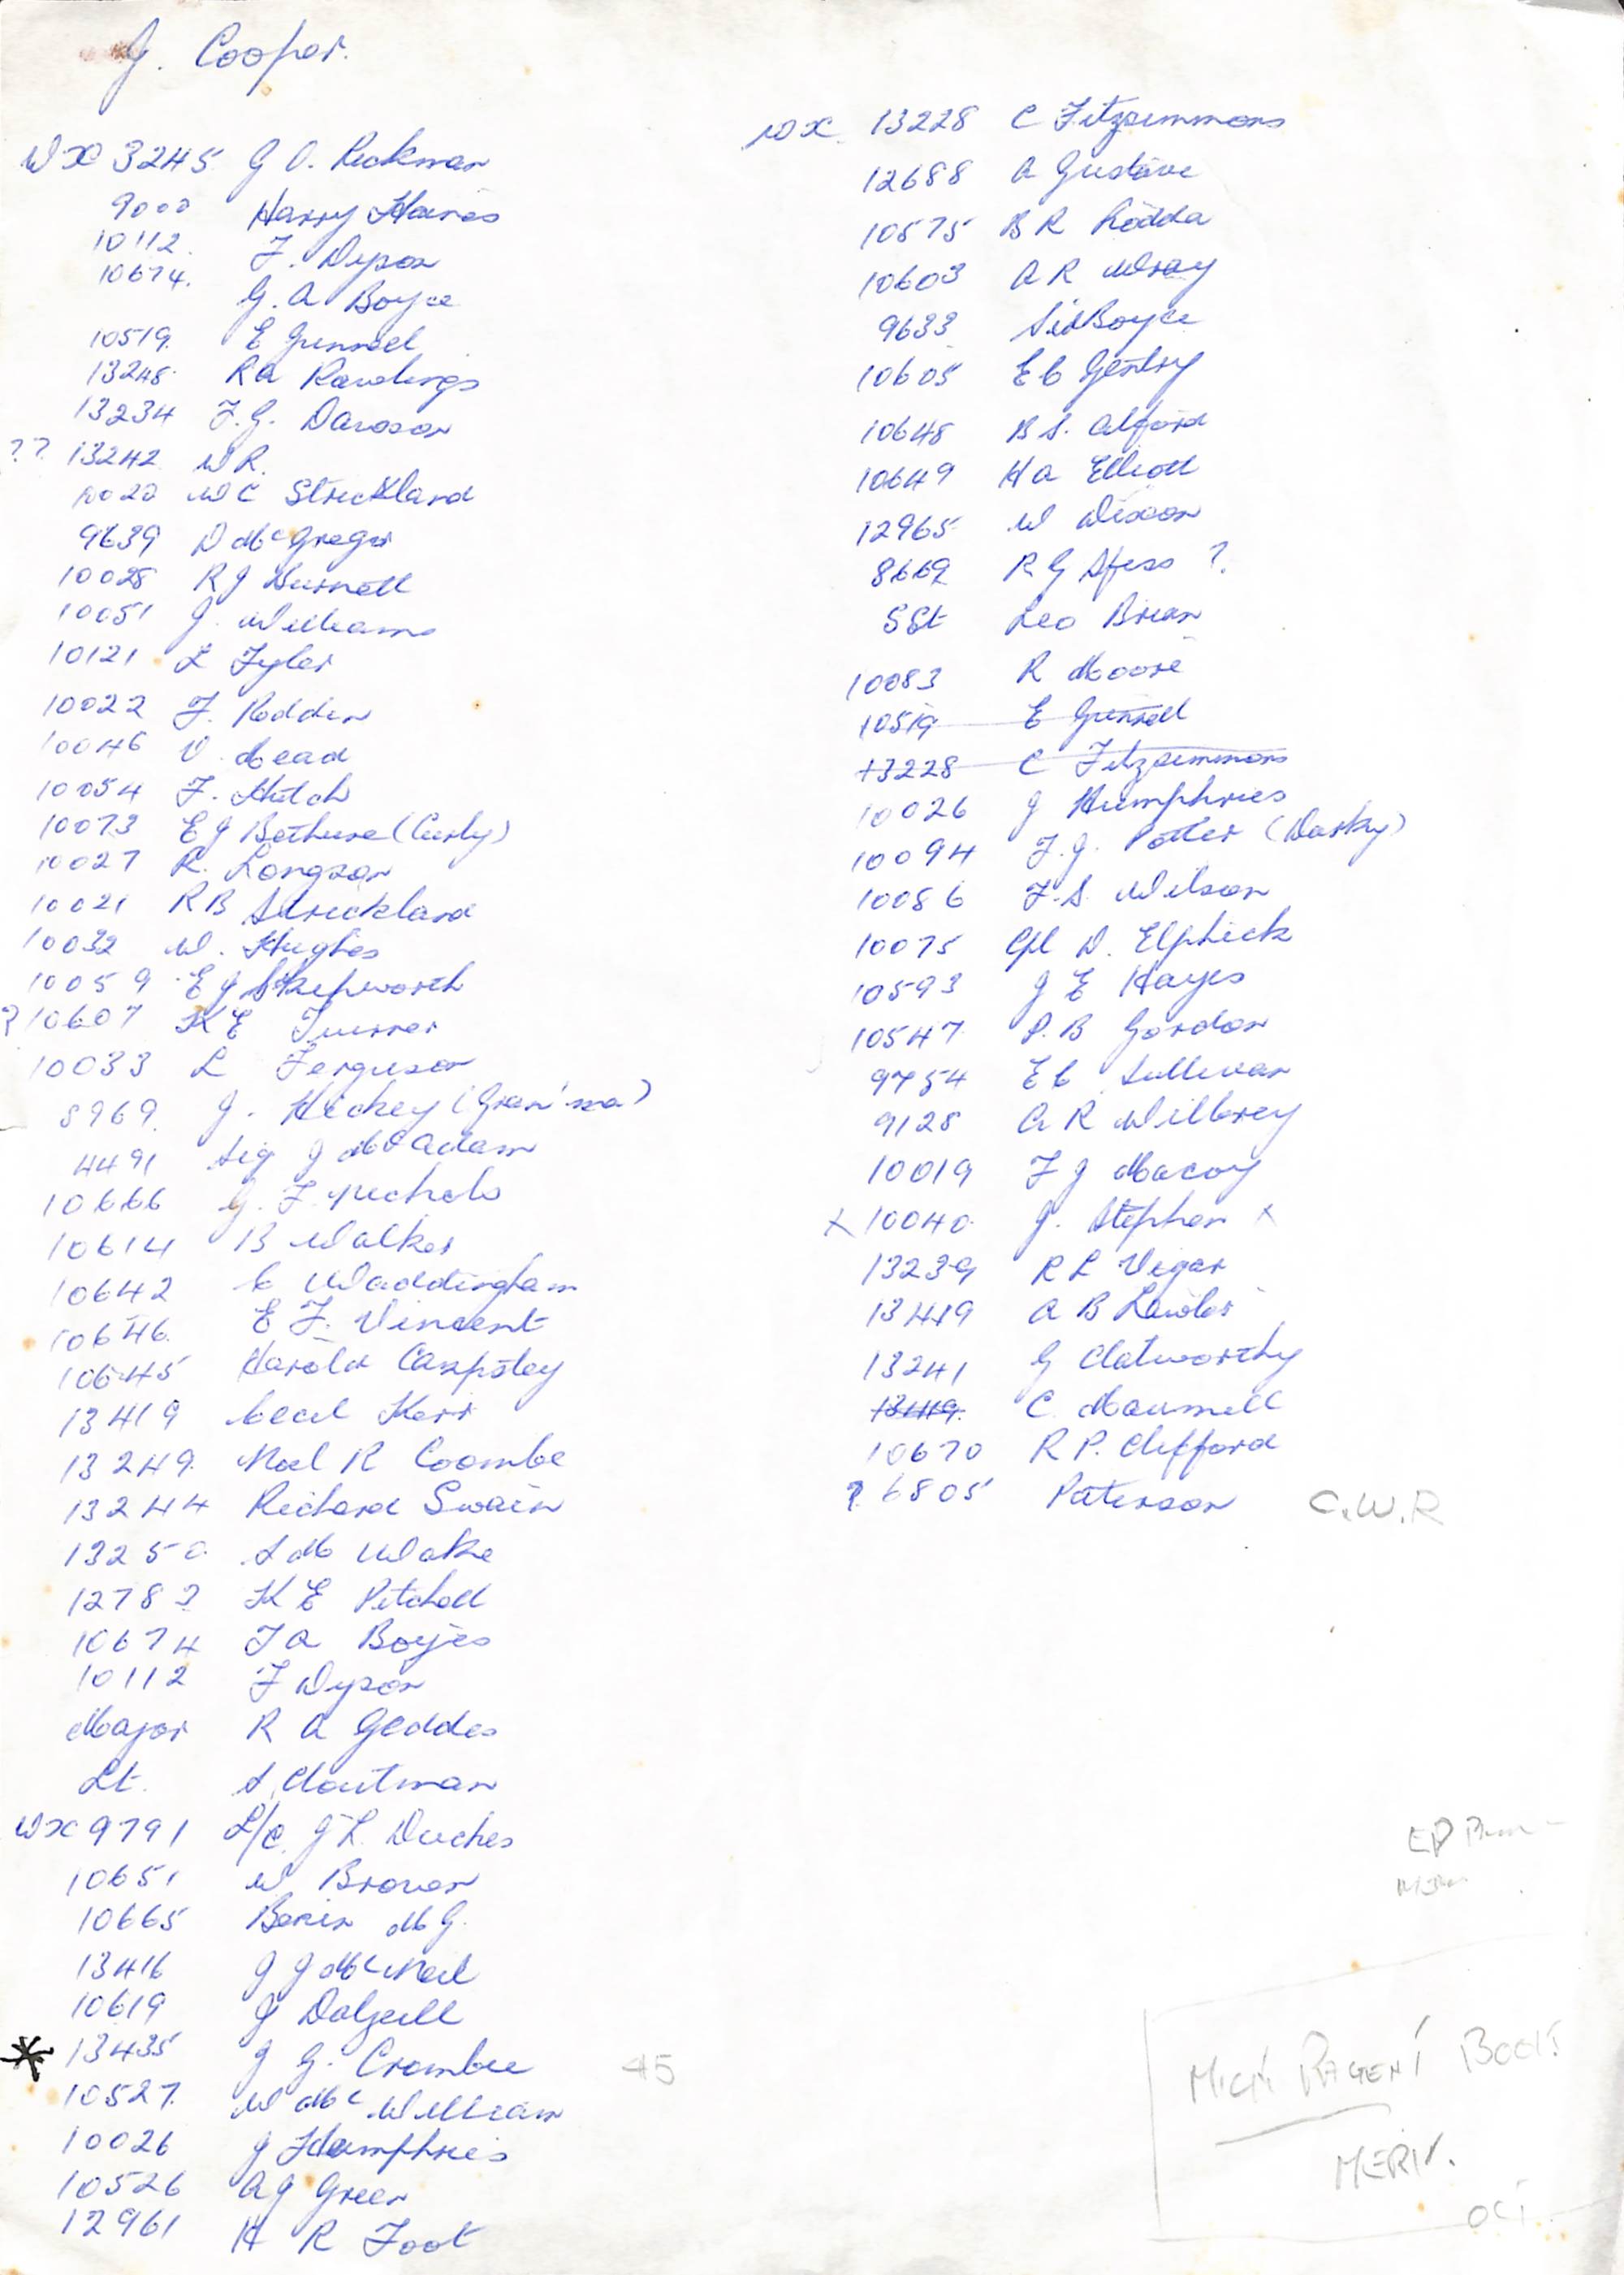 J. Cooper.
WX 3245 G O. Rickman
9000 Harry Haines
10112. J. Dyson
10674. G. A Boyce
10519. E Gunnell
13248. RA Rawlings
13234 J.G. Dawson
?? 13242 W R.
10020 W C Strickland
9639 D McGregor
10028 R J Burnett
10051 J. Williams
10121 L Tyler
10022 J. Rodden
10046 V. Mead
10054 F. Hitch
10073 E J Bethune (Curly)
10027 R. Longson
10021 RB Strickland
10032 W. Hughes
10059 E J Skepworth
? 10607 K E Turner
10033 L Ferguson
8969. J. Hickey (Gran'ma)
4491 Sig J McAdam
10666 G. F. Nichols
10614 B Walker
10642 C Waddingham
10646. E F. Vincent
10645 Harold
13419 Cecil Kerr
13249. Noel R Coombe
13244 Richard Swain
13250 S M Wake
1278? K E Pitchell
10674 J A Boyes
10112 J Dyson
Major R A Geddes
Lt. S
WX 9791 L/C. J L. Duches
10651 W Brown
10665 Bevis M G.
13416 J J McNeil
10619 J Dalzell
* 13435 J G. Crombie 45
10527. W Mc William
10026 J Humphries
10526 A J Green
12961 H R Foot
WX. 13228 C Fitzsimmons
12688 A Gustave
10575 B R Rodda
10603 A R Wray
9633 Sid Boyce
10605 E C Gentry
10648 B S. Alford
10649 H A Elliott
12965 W Dixon
8669 R G ?
SSt Leo Brian
10083 R Moore
10519 E Gunnell
13228 C Fitzsimmons
10026 J Humphries
10094 J. J. Potter (Darky)
10086 J. S. Wilson
10075 Cpl D. Elphick
10593 J E Hayes
10547 P. B Gordon
9754 E C Sullivan
9128 A R Wilbrey
10019 J J Macoy
X 10040. J. Stephen X
13239 R L Vigar
13419 A B Lawler
13241 G Clatworthy
13419. C. Maunsell
10670 R P. Clifford
? 6805 Paterson C.W.R
ED
MICK BOOK
MERV.
OCT.